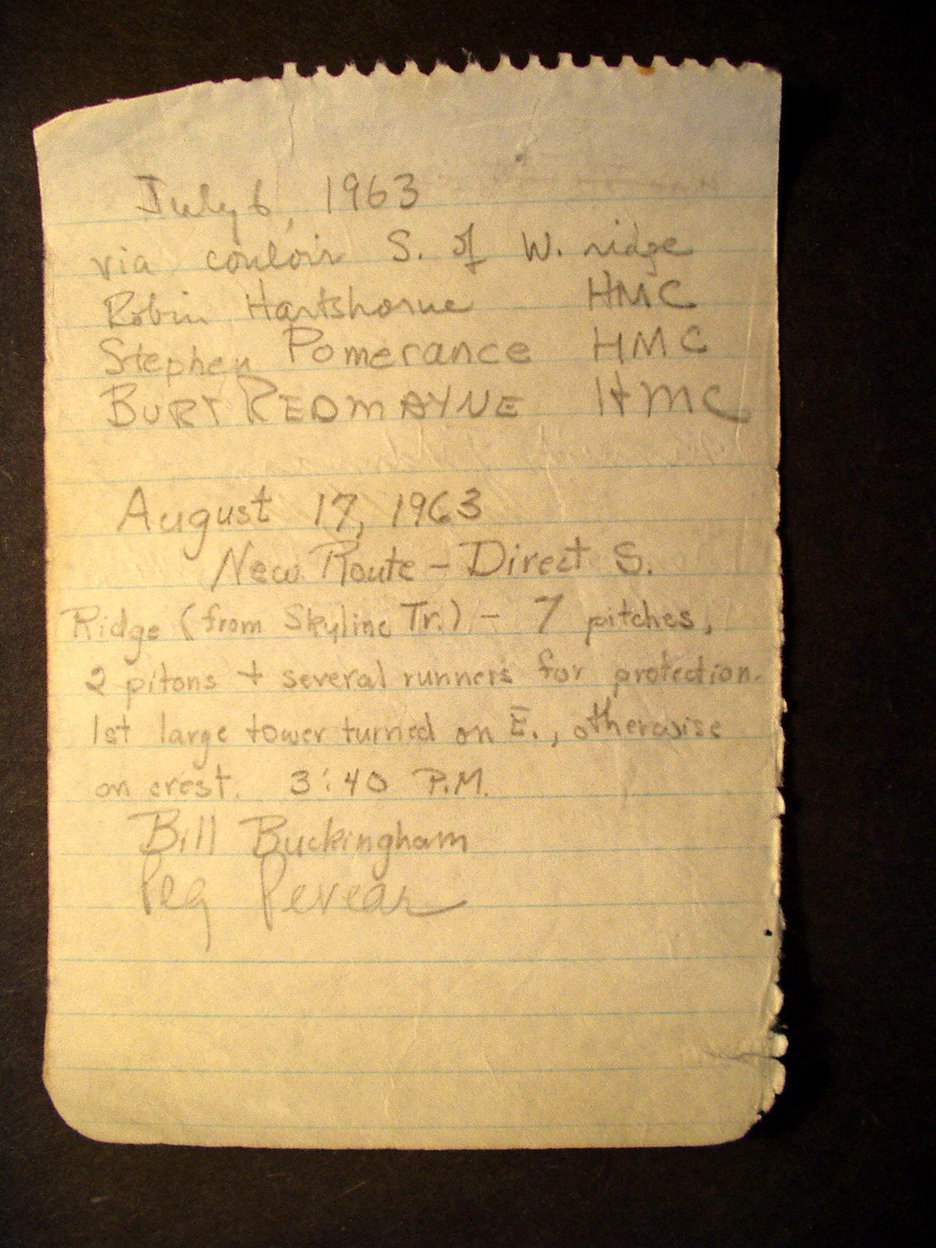 July 6, 1963
via couloir S. of W. ridge
Robin Hartshorne HMC
Stephen Pomerance HMC
BURT REDMAYNE HMC
August 17, 1963
New Route – Direct S.
Ridge (from Skyline Tr.) – 7 pitches,
2 pitons + several runners for protection.
1st large tower turned on E., otherwise
on crest. 3:40 P.M.
Bill Buckingham
Peg Pevear